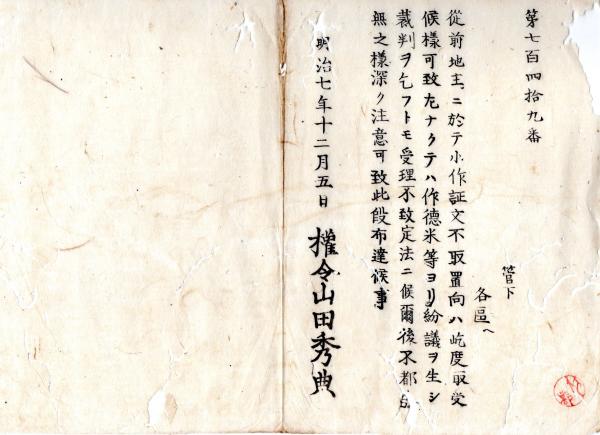 第七百四拾九番
管下
各區ヘ
從前地主ニ於テ小作証文不取置向ハ屹度取受
候様可致左ナクテハ作德米等ヨリ紛議ヲ生シ
裁判ヲ乞フトモ受理不致定法ニ候爾後不都合
無之様深ク注意可致此段布達候事
明治七年十二月五日
權令山田秀典